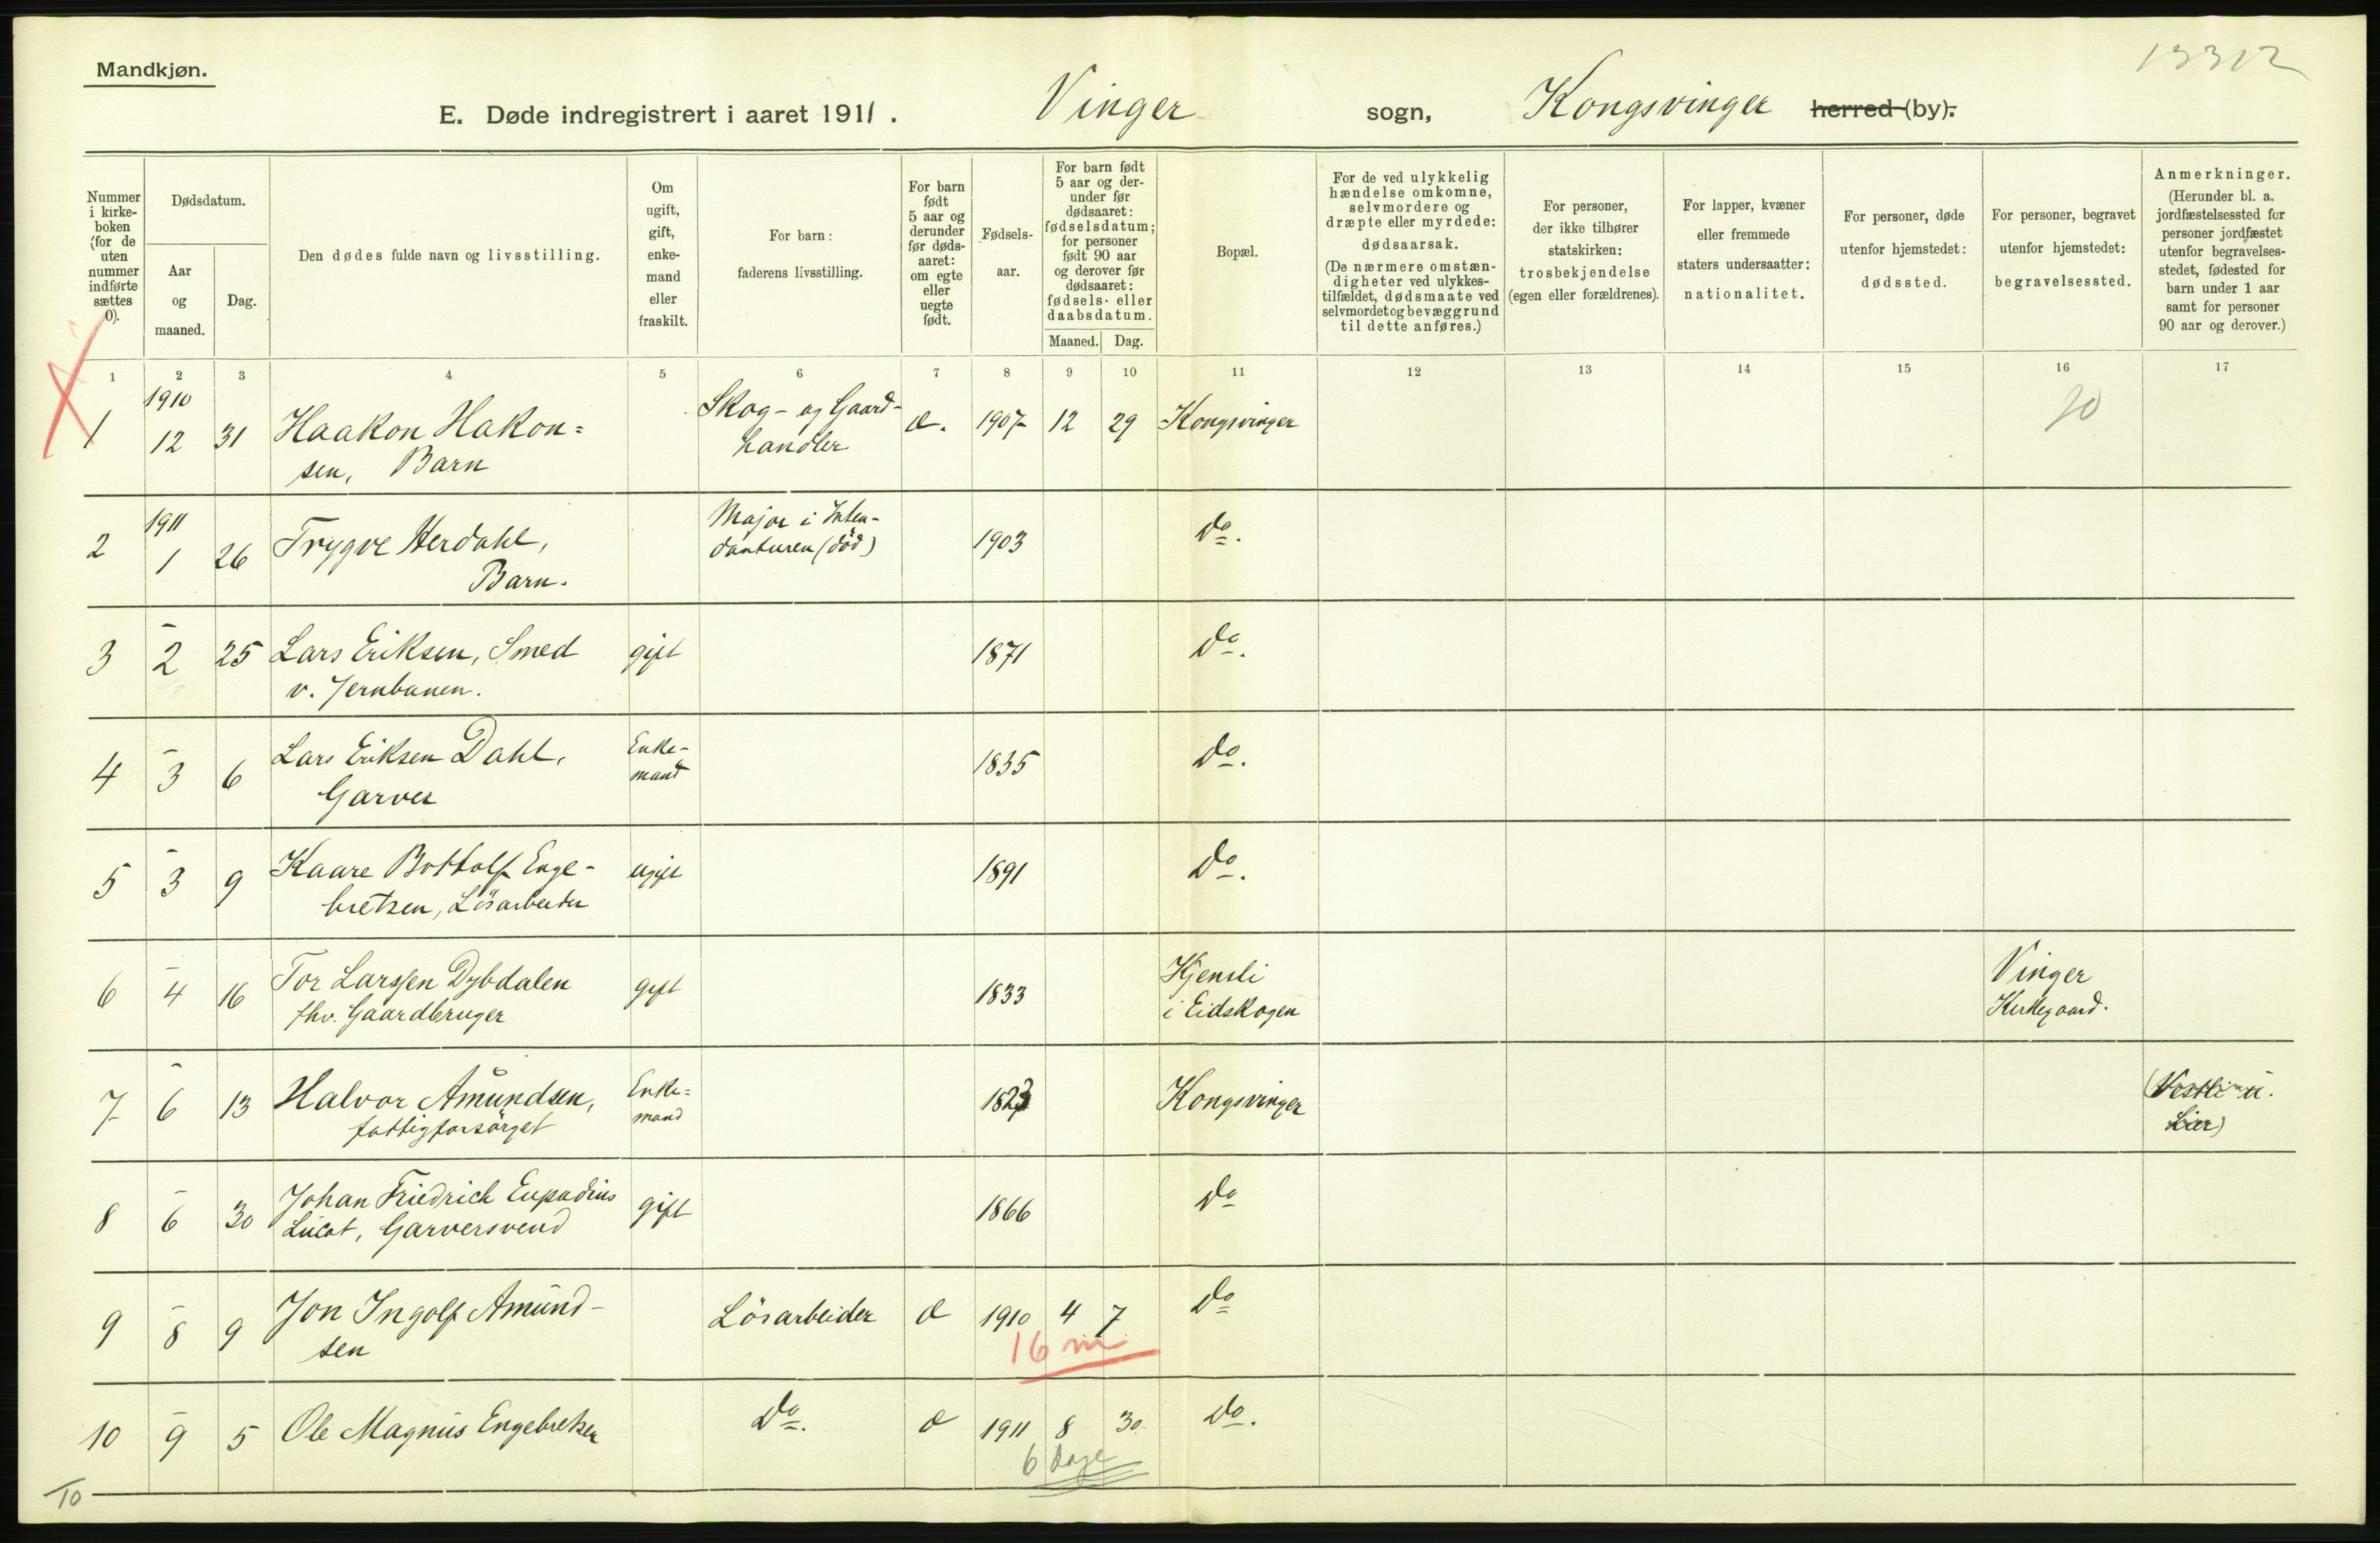 Mandkjøn.
13312
E. Døde indregistrert i aaret 1911. Vinger sogn, Kongsvinger herred (by).
Nummer i kirke-boken (for de uten nummer indførte sættes 0).
Dødsdatum.
Aar og maaned.
Dag.
Den dødes fulde navn og livsstilling.
Om ugift, gift, enke-mand eller fraskilt.
For barn: faderens livsstilling.
For barn født 5 aar og derunder før døds-aaret: om egte eller uegte født.
Fødsels-aar.
For barn født 5 aar og der-under før dødsaaret: fødselsdatum; for personer født 90 aar og derover før dødsaaret: fødsels- eller daabsdatum.
Maaned. Dag.
Bopæl.
For de ved ulykkelig hændelse omkomne, selvmordere og dræpte eller myrdede: dødsaarsak. (De nærmere omstæn-digheter ved ulykkes-tilfældet, dødsmaate ved selvmordet og bevæggrund til dette anføres.)
For personer, der ikke tilhører statskirken: trosbekjendelse (egen eller forældrenes).
For lapper, kvæner eller fremmede staters undersaatter: nationalitet.
For personer, døde utenfor hjemstedet: dødssted.
For personer, begravet utenfor hjemstedet: begravelsessted.
Anmerkninger. (Herunder bl. a. jordfæstelsessted for personer jordfæstet utenfor begravelses-stedet, fødested for barn under 1 aar samt for personer 90 aar og derover.)
1 2 3 4 5 6 7 8 9 10 11 12 13 14 15 16 17
1910 Skog- og Gaard-
1 12 31 Haakon Hakon= handler 1907 12 29 Kongsvinger
sen, Barn
1911 Major i Inten-
2 1 26 Trygve Herdahl, danturen (död) 1903 Do.
Barn.
3 - 2 25 Lars Eriksen, Smed gift 1871 Do.
v. Jernbanen.
4 - 3 6 Lars Eriksen Dahl, Enke- 1835 Do.
Garver mand
5 - 3 9 Kaare Bottolf Enge- ugift 1891 Do.
bretsen, Lösarbeider
6 - 4 16 Tor Larssen Dybdalen gift 1833 Kjensli Vinger
fhv. Gaardbruger i Eidskogen Kirkegaard.
7 - 6 13 Halvor Amundsen, Enke= Kongsvinger
fattigforsörget mand
8 - 6 30 Johan Friedrich gift 1866 Do
Garversvend
9 - 8 9 Jon Ingolf Amund- Lösarbeider 1910 4 7 Do
sen 16 m
10 - 9 5 Ole Magnus Engebretsen Do. 1911 8 30 Do.
6 Dage
10